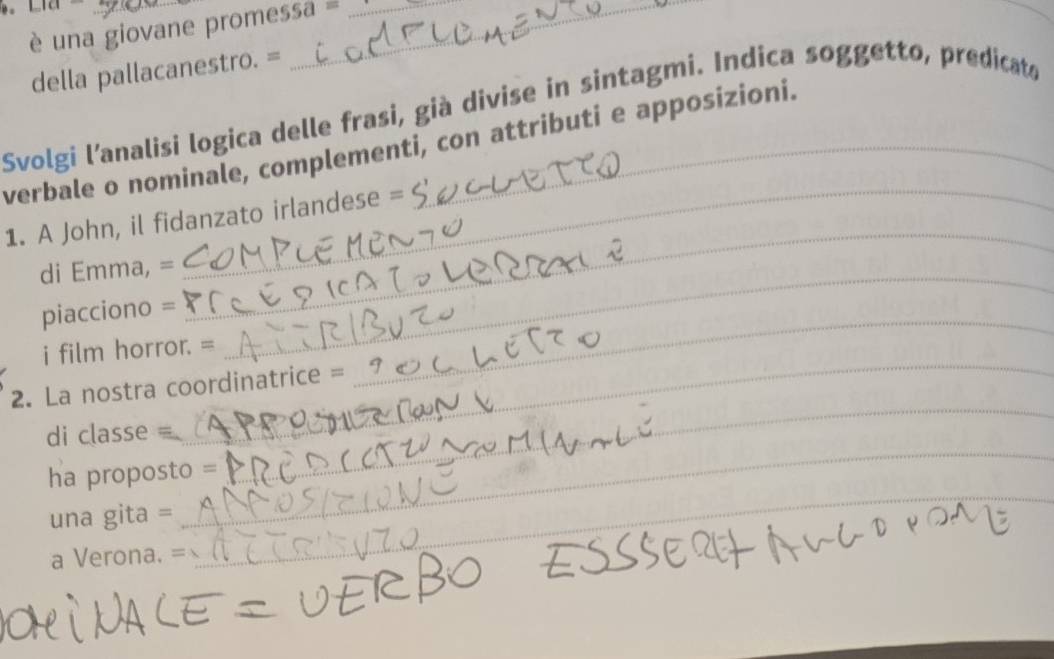 è una giovane promessa =
della pallacanestro. = COMPLEMENTO
Svolgi l'analisi logica delle frasi, già divise in sintagmi. Indica soggetto, predicato
verbale o nominale, complementi, con attributi e apposizioni.
1. A John, il fidanzato irlandese = SOGGETTO
di Emma, = COMPLEMENTO
piacciono = PREDICATO VERBALE
i film horror. = ATTRIBUTO
2. La nostra coordinatrice = SOGGETTO
di classe = APPOSIZIONE
ha proposto = PREDICATO NOMINALE
una gita = APPOSIZIONE
a Verona. = ATTRIBUTO
= VERBO ESSSERE +